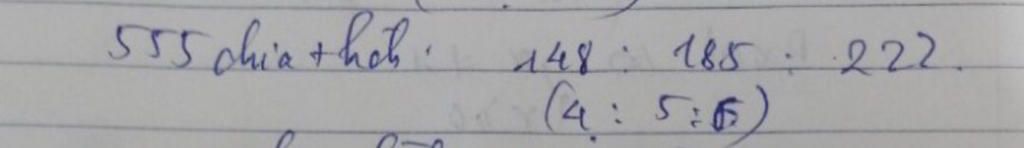 555 chia thành: 148 : 185 : 222.
(4 : 5 : 6)